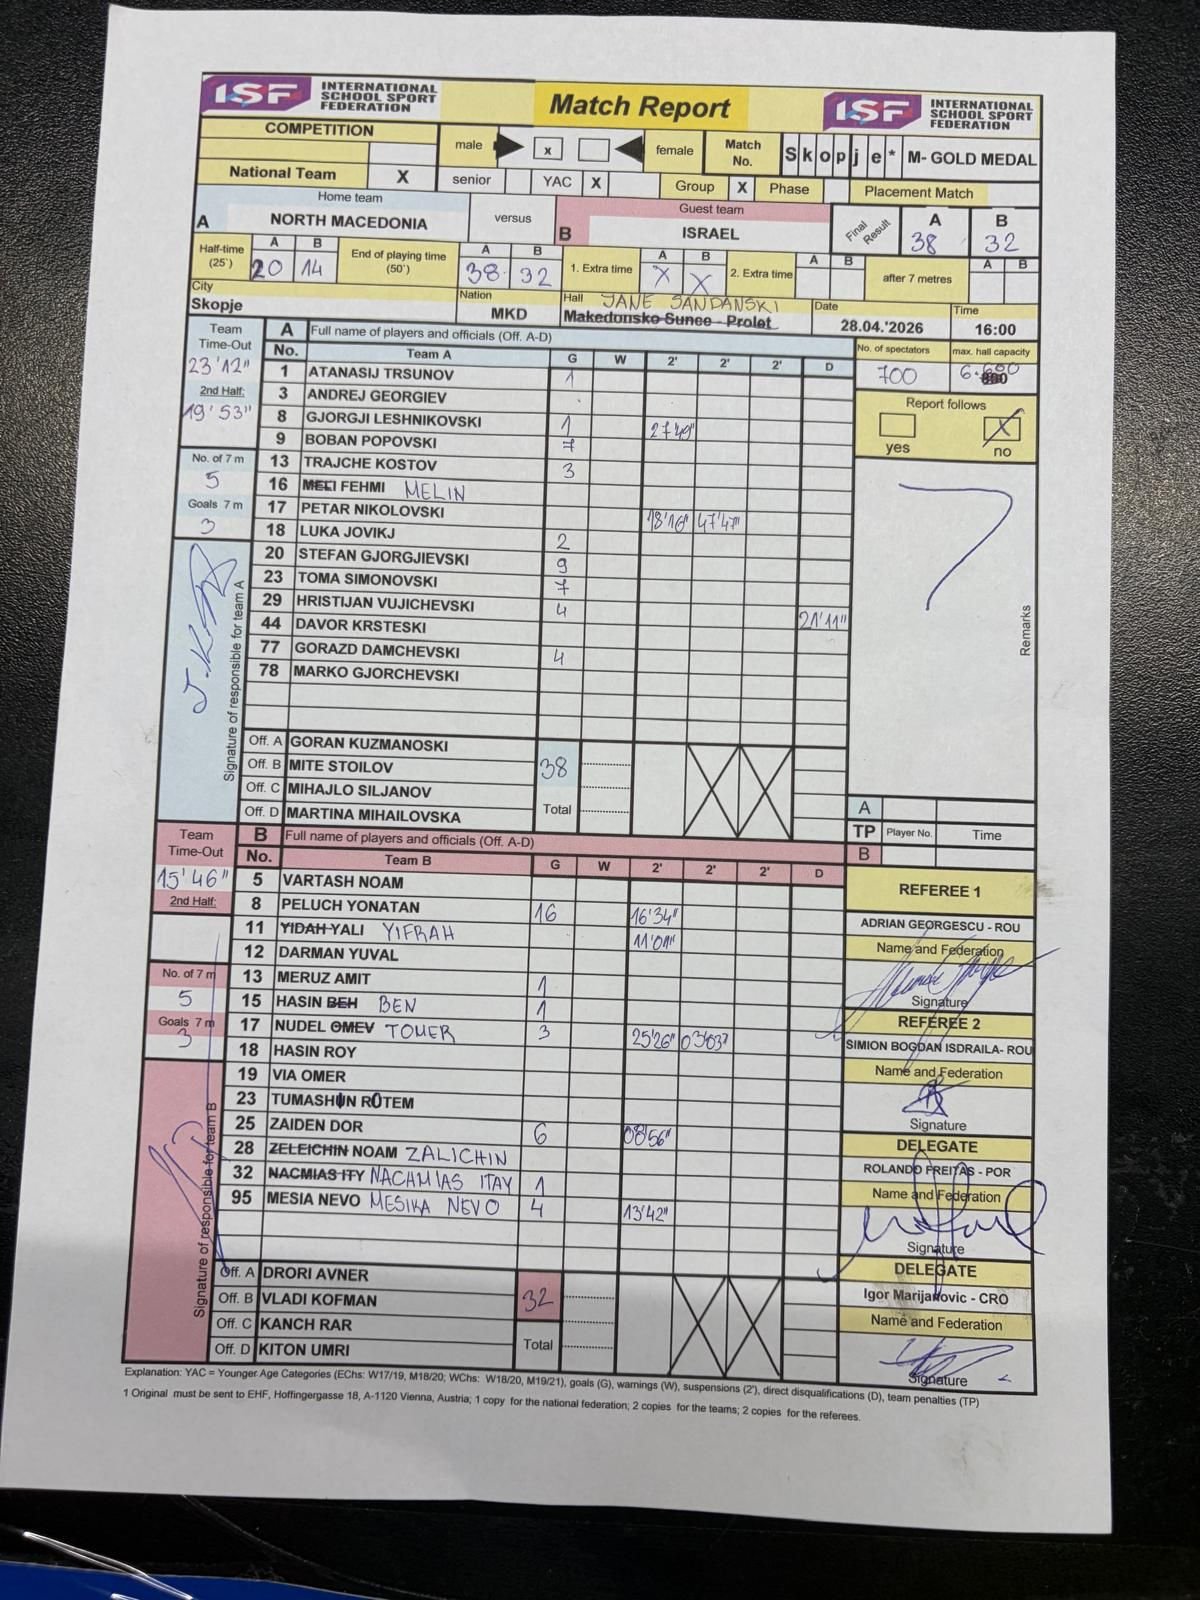 ISF INTERNATIONAL SCHOOL SPORT FEDERATION Match Report ISF INTERNATIONAL SCHOOL SPORT FEDERATION
COMPETITION male x female Match No. Skopje* M- GOLD MEDAL
National Team X senior YAC X Group X Phase Placement Match
Home team versus Guest team Final Result A B
A NORTH MACEDONIA B ISRAEL 38 32
Half-time (25`) A 20 B 14 End of playing time (50`) A 38 B 32 1. Extra time A X B X 2. Extra time A B after 7 metres A B
City Nation Hall JANE SANDANSKI Date Time
Skopje MKD Makedonsko Sunce - Prolet 28.04.'2026 16:00
Team Time-Out A Full name of players and officials (Off. A-D) No. of spectators max. hall capacity
23'12" No. Team A G W 2' 2' 2' D 700
2nd Half: 19'53"
1 ATANASIJ TRSUNOV 1
3 ANDREJ GEORGIEV
8 GJORGJI LESHNIKOVSKI 1 27'49"
9 BOBAN POPOVSKI 7
13 TRAJCHE KOSTOV 3
16 MELI FEHMI MELIN
17 PETAR NIKOLOVSKI 18'16" 47'47"
18 LUKA JOVIKJ 2
20 STEFAN GJORGJIEVSKI 9
23 TOMA SIMONOVSKI 7
29 HRISTIJAN VUJICHEVSKI 4 21'11"
44 DAVOR KRSTESKI
77 GORAZD DAMCHEVSKI 4
78 MARKO GJORCHEVSKI
No. of 7 m
5
Goals 7 m
3
Signature of responsible for team A
Report follows
yes no
Remarks
Off. A GORAN KUZMANOSKI
Off. B MITE STOILOV 38
Off. C MIHAJLO SILJANOV
Off. D MARTINA MIHAILOVSKA Total
A
TP Player No. Time
B
Team Time-Out B Full name of players and officials (Off. A-D)
15'46" No. Team B G W 2' 2' 2' D
2nd Half:
5 VARTASH NOAM
8 PELUCH YONATAN 16 16'34"
11 YIDAH YALI YIFRAH 11'01"
12 DARMAN YUVAL
13 MERUZ AMIT 1
15 HASIN BEH BEN 1
17 NUDEL OMEV TOMER 3 25'26"
18 HASIN ROY
19 VIA OMER
23 TUMASHUN ROTEM
25 ZAIDEN DOR 6 08'56"
28 ZELEICHIN NOAM ZALICHIN
32 NACMIAS ITY NACHMIAS ITAY 1
95 MESIA NEVO MESIKA NEVO 4 13'42"
No. of 7 m
5
Goals 7 m
3
Signature of responsible for team B
Off. A DRORI AVNER
Off. B VLADI KOFMAN 32
Off. C KANCH RAR
Off. D KITON UMRI Total
REFEREE 1
ADRIAN GEORGESCU - ROU
Name and Federation
Signature
REFEREE 2
SIMION BOGDAN ISDRAILA- ROU
Name and Federation
Signature
DELEGATE
ROLANDO FREITAS - POR
Name and Federation
Signature
DELEGATE
Igor Marijanovic - CRO
Name and Federation
Signature
Explanation: YAC = Younger Age Categories (EChs: W17/19, M18/20; WChs: W18/20, M19/21), goals (G), warnings (W), suspensions (2'), direct disqualifications (D), team penalties (TP)
1 Original must be sent to EHF, Hoffingergasse 18, A-1120 Vienna, Austria; 1 copy for the national federation; 2 copies for the teams; 2 copies for the referees.